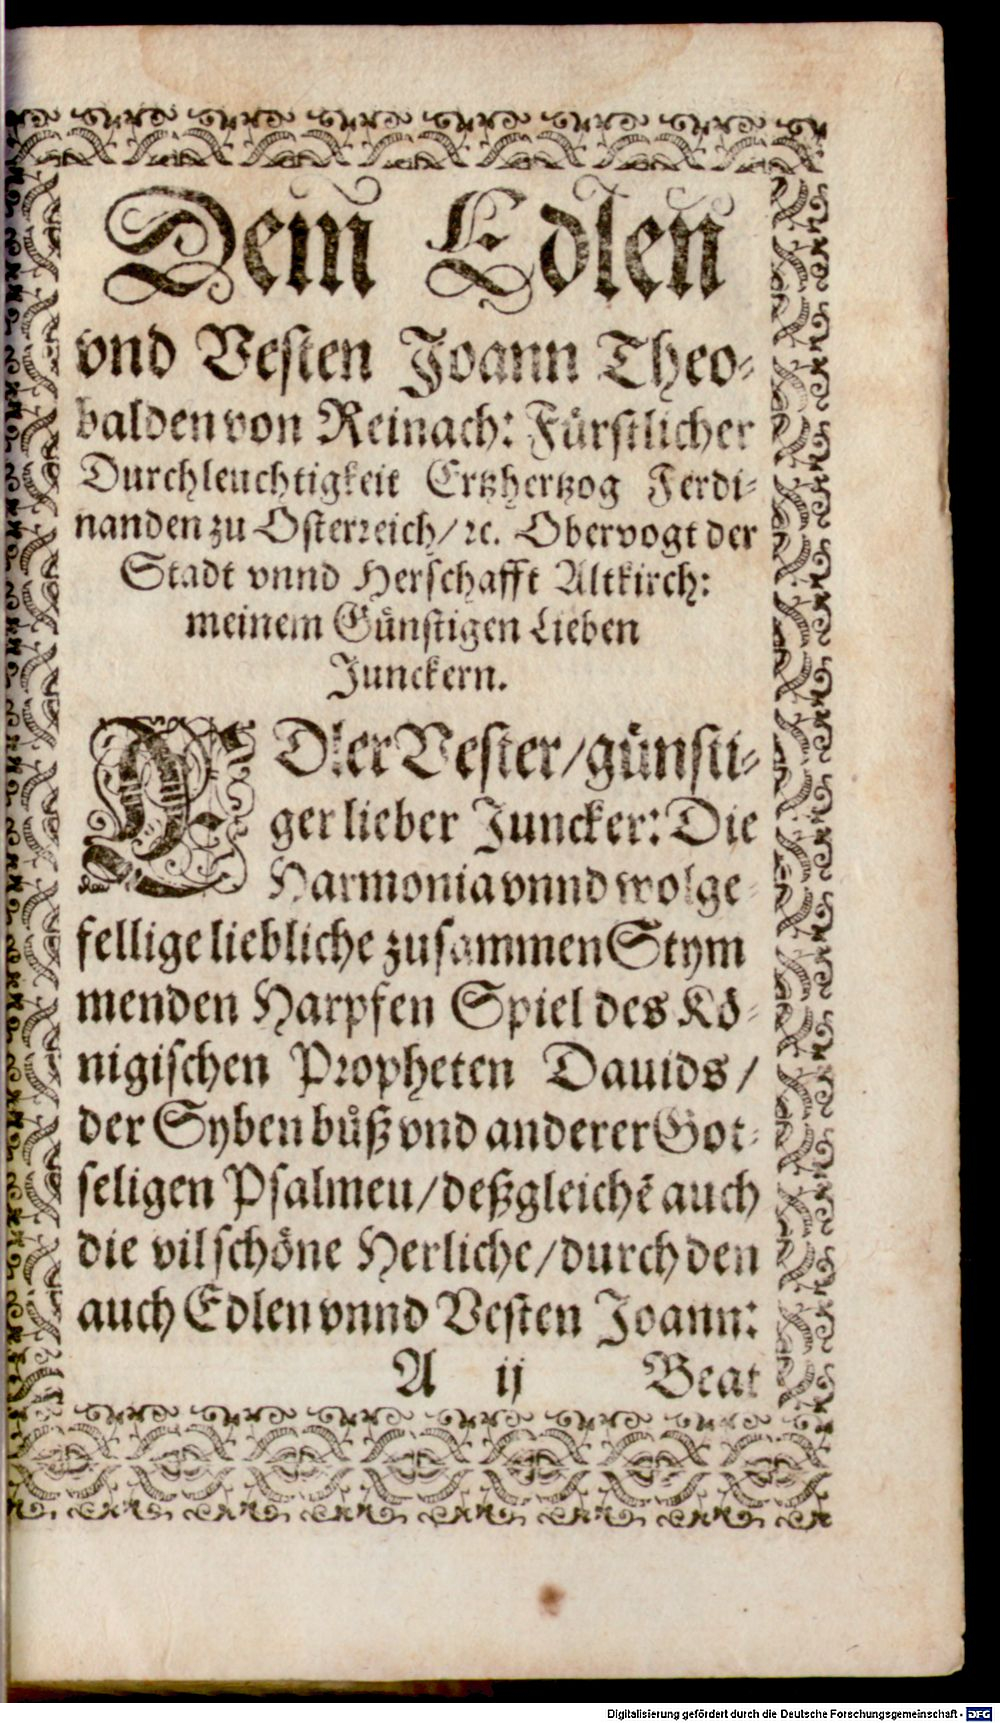 Dem Edlen
vnd Vesten Joann Theo-
balden von Reinach: Fürstlicher
Durchleuchtigkeit Ertzhertzog Ferdi-
nanden zu Osterreich/ ꝛc. Obervogt der
Stadt vnnd Herschafft Altkirch:
meinem Günstigen Lieben
Junckern.
EDler Vester/günsti-
ger lieber Juncker: Die
Harmonia vnnd wolge-
fellige liebliche zusammen Stym
menden Harpfen Spiel des Kö-
nigischen Propheten Dauids/
der Syben bůß vnd anderer Got-
seligen Psalmeu/deßgleichē auch
die vil schöne Herliche/durch den
auch Edlen vnnd Vesten Joann:
A ij Beat
Digitalisierung gefördert durch die Deutsche Forschungsgemeinschaft - DFG